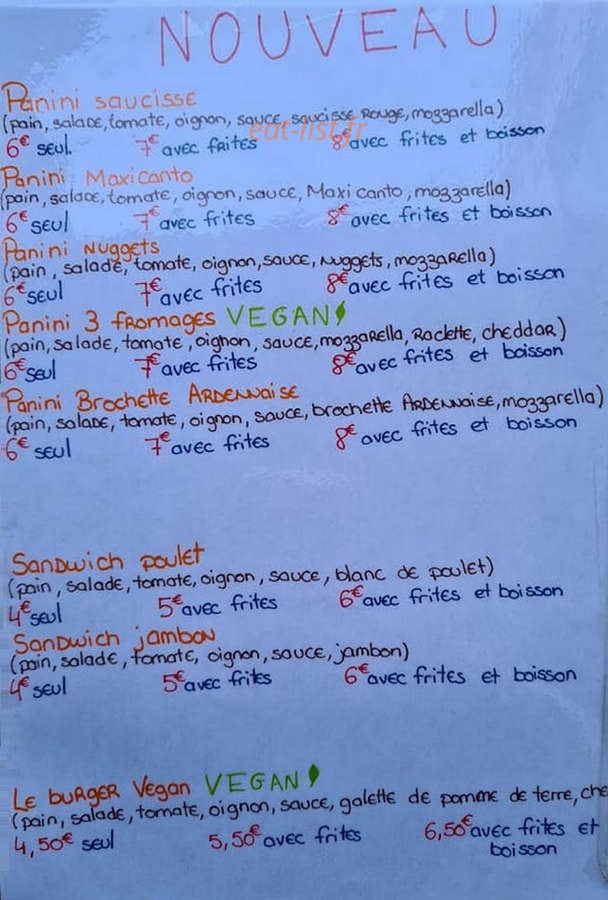 NOUVEAU
Panini saucisse
(pain, salade, tomate, oignon, sauce, saucisse Rouge, mozzarella)
eat-list.fr
6€ seul 7€ avec frites 8€ avec frites et boisson
Panini Maxicanto
(pain, salade, tomate, oignon, sauce, Maxi canto, mozzarella)
6€ seul 7€ avec frites 8€ avec frites et boisson
Panini Nuggets
(pain, salade, tomate, oignon, sauce, Nuggets, mozzarella)
6€ seul 7€ avec frites 8€ avec frites et boisson
Panini 3 fromages VEGAN
(pain, salade, tomate, oignon, sauce, mozzarella, Raclette, cheddar)
6€ seul 7€ avec frites 8€ avec frites et boisson
Panini Brochette Ardennaise
(pain, salade, tomate, oignon, sauce, brochette Ardennaise, mozzarella)
6€ seul 7€ avec frites 8€ avec frites et boisson
Sandwich poulet
(pain, salade, tomate, oignon, sauce, blanc de poulet)
4€ seul 5€ avec frites 6€ avec frites et boisson
Sandwich jambon
(pain, salade, tomate, oignon, sauce, jambon)
4€ seul 5€ avec frites 6€ avec frites et boisson
Le burger Vegan VEGAN
(pain, salade, tomate, oignon, sauce, galette de pomme de terre, che
4,50€ seul 5,50€ avec frites 6,50€ avec frites et
boisson